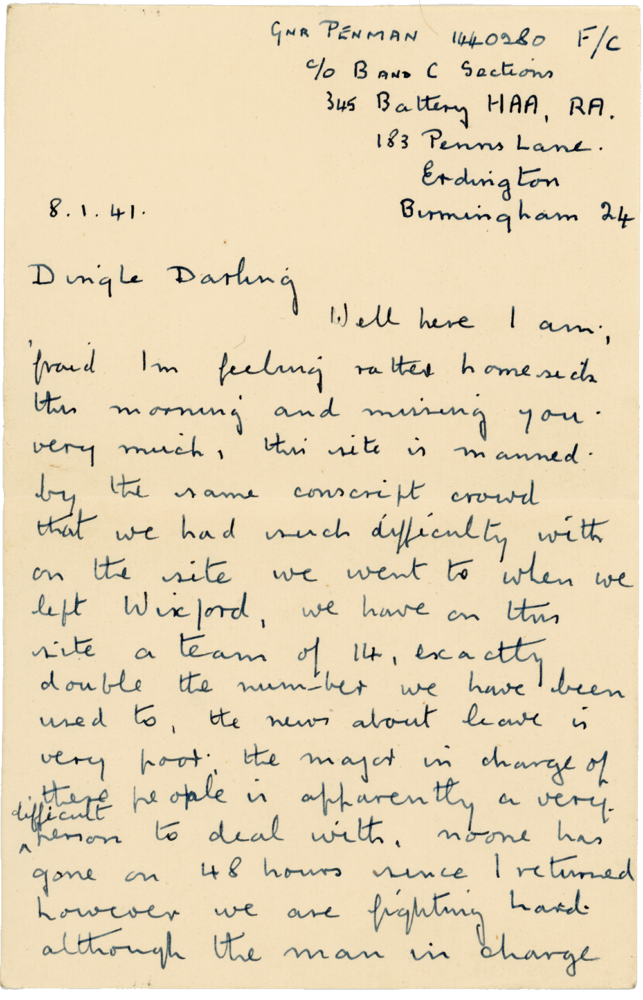 GNR PENMAN 1440280 F/C
c/o B AND C Sections
345 Battery HAA, RA.
183 Penns Lane.
Erdington
8.1.41.
Birmingham 24
Dingle Darling
Well here I am,
'fraid Im feeling rather homesick
this morning and missing you
very much, this site is manned
by the same conscript crowd
that we had such difficulty with
on the site we went to when we
left Wixford, we have on this
site a team of 14, exactly
double the number we have been
used to, the news about leave is
very poor, the major in charge of
these people is apparently a very
difficult
person to deal with, noone has
gone on 48 hours since I returned
however we are fighting hard
although the man in charge